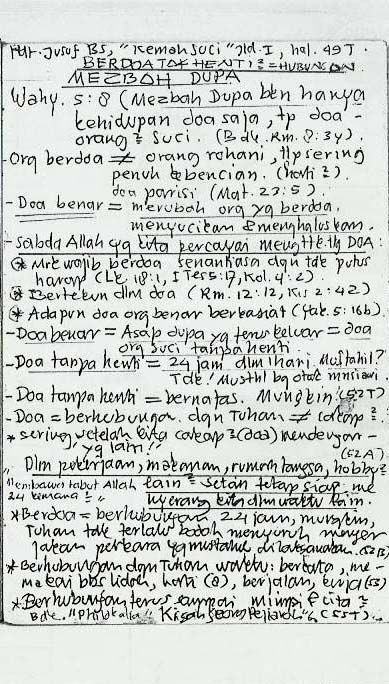 Pdt. Jusuf BS, "Kemah Suci" Jld. I, hal. 49T.
BERDOA TAK HENTI² = HUBUNGAN
MEZBAH DUPA
Wahy. 5:8 (Mezbah Dupa bkn hanya
kehidupan doa saja, tp doa-
orang² Suci. (Bdk. Rm. 8:34).
-Org berdoa ≠ orang rohani, ttp sering
penuh kebencian. (hati²).
doa parisi (Mat. 23:5).
-Doa benar = merubah org yg berdoa.
menyucikan & menghaluskan.
-Sabda Allah yg kita percayai ttg DOA:
* Mrk wajib berdoa senantiasa dgn tdk putus
harap (Lk 18:1, I Tes 5:17, Kol. 4:2).
* Bertekun dlm doa (Rm. 12:12, Kis 2:42)
* Adapun doa org benar berkasiat (Yak. 5:16b).
-Doa benar = Asap dupa yg terus keluar = doa
org suci tanpa henti.
-Doa tanpa henti = 24 jam dlm 1 hari. Mustahil?
Tdk! Musthl bg otak manusiawi.
-Doa tanpa henti = bernafas. Mungkin! (52T)
-Doa = berhubungan dgn Tuhan ≠ cakap²
* sering setelah kita cakap² (doa) mendengar-
yg lain!! (52A)
Dlm pekerjaan, makanan, rumah tangga, hobby²
"Membawa tabut Allah lain² = setan tetap siap
24 kemana²" nyerang kita dlm waktu lain.
* Berdoa = berhubungan 24 jam, mungkin,
Tuhan tdk terlalu bodoh menyuruh
perkara yg mustahil dilaksanakan. (52B)
* Berhubungan dgn Tuhan waktu: berkata, me-
makai bhs lidah, hati (8), berjalan, kerja (53)
* Berhubungan terus sampai mimpi & cita²
Bdk. "Philokalia" Kisah Seorang Peziarah" (55T).